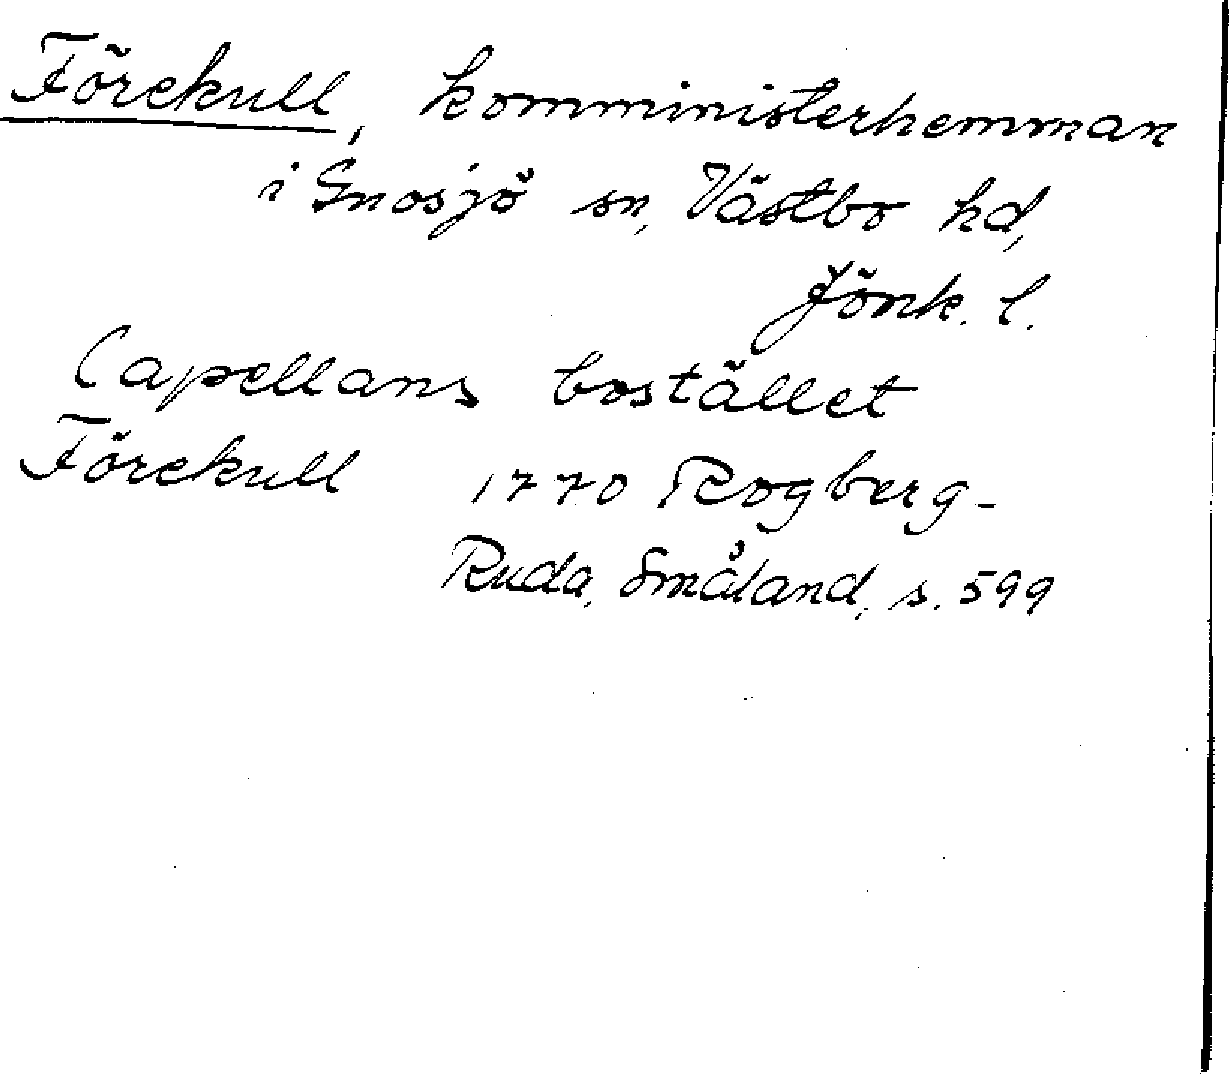 Förekull, komministerhemman
i Gnosjö sn, Västbo hd,
Jönk. l.
Capellans bostället
Förekull 1770 Rogberg-
Ruda, Småland, s. 599